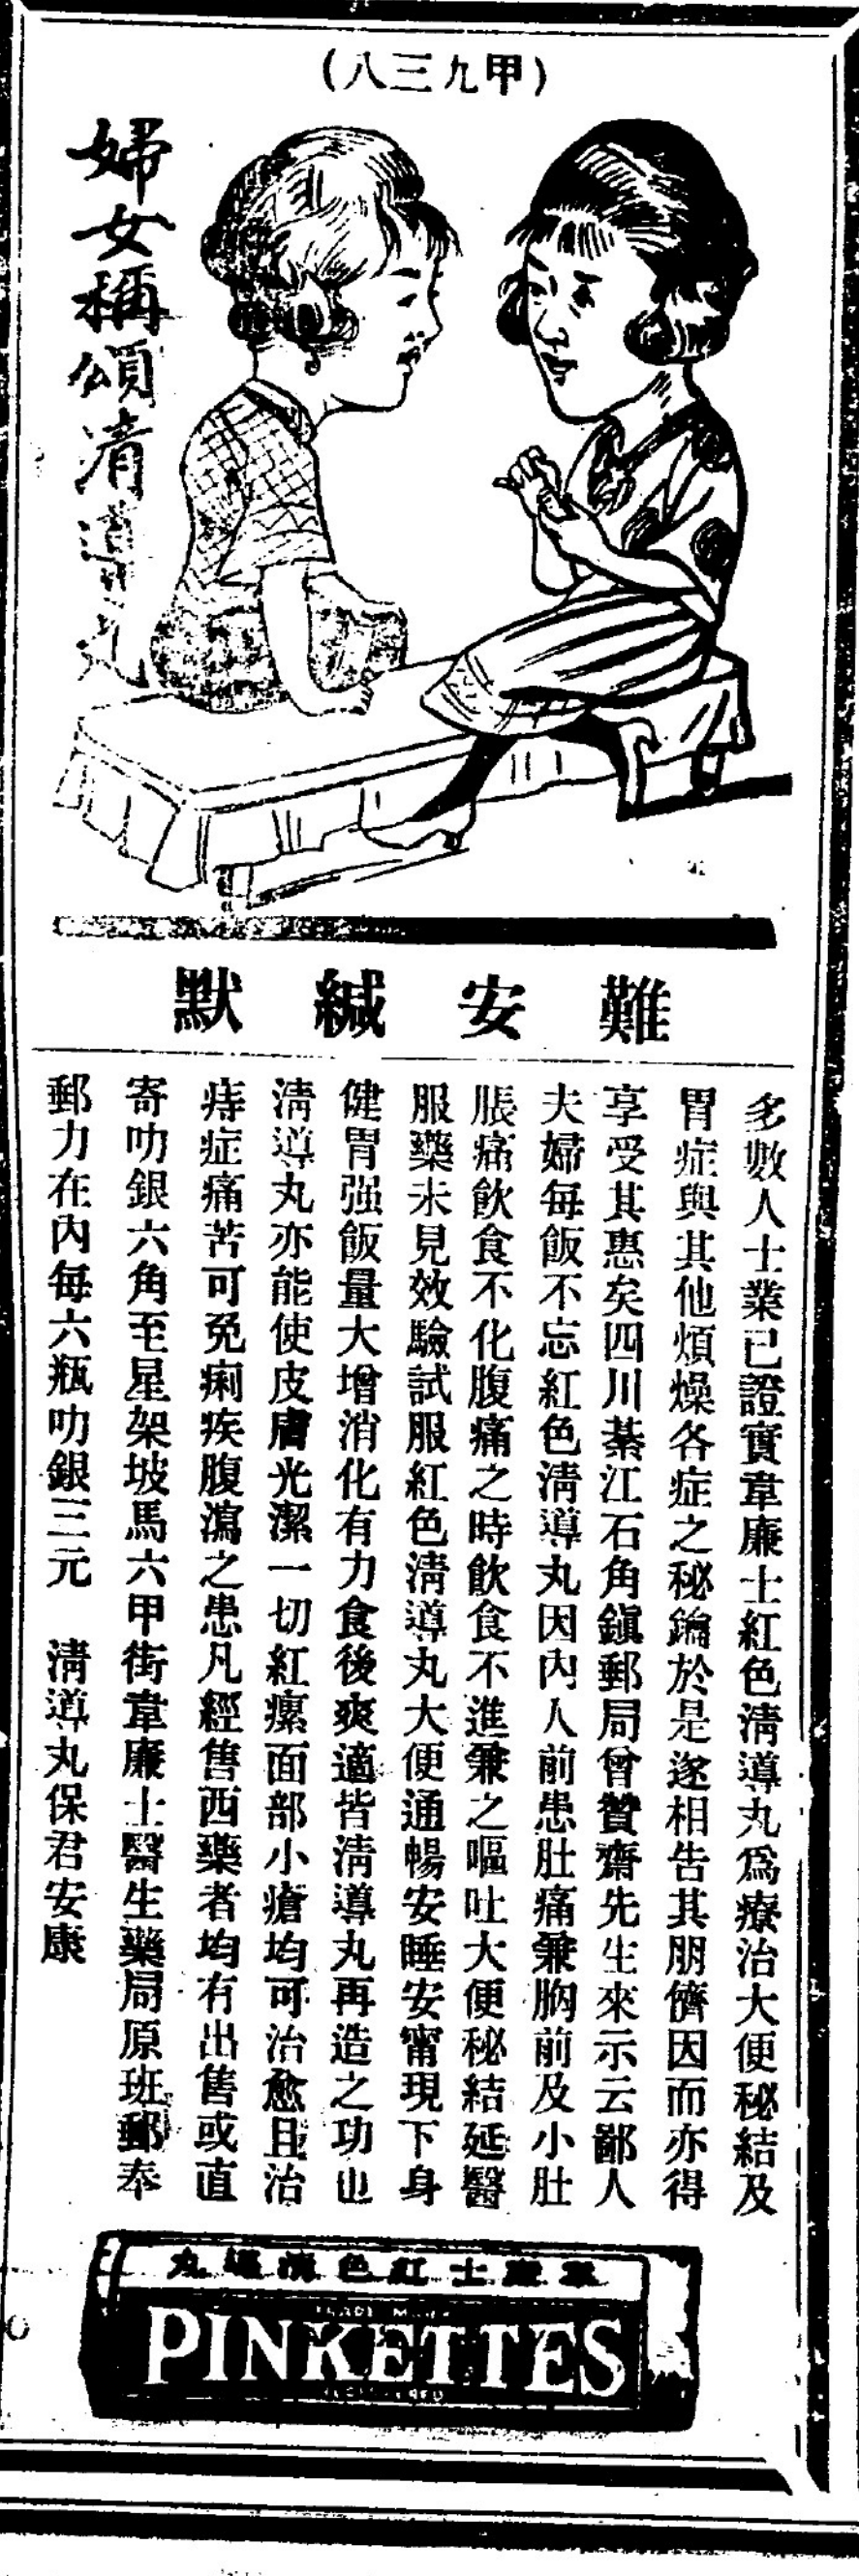 (甲九三八)
婦女稱頌清導丸
難安緘默
多數人士業已證實韋廉士紅色清導丸爲療治大便秘結及
胃症與其他煩燥各症之秘鑰於是遂相告其朋儕因而亦得
享受其惠矣四川綦江石角鎭郵局曾贊齋先生來示云鄙人
夫婦每飯不忘紅色清導丸因內人前患肚痛兼胸前及小肚
脹痛飲食不化腹痛之時飲食不進兼之嘔吐大便秘結延醫
服藥未見效驗試服紅色清導丸大便通暢安睡安甯現下身
健胃强飯量大增消化有力食後爽適皆清導丸再造之功也
清導丸亦能使皮膚光潔一切紅瘰面部小瘡均可治愈且治
痔症痛苦可免痢疾腹瀉之患凡經售西藥者均有出售或直
寄叻銀六角至星架坡馬六甲街韋廉士醫生藥局原班郵奉
郵力在內每六瓶叻銀三元　清導丸保君安康
韋廉士紅色清導丸
TRADE MARK
PINKETTES